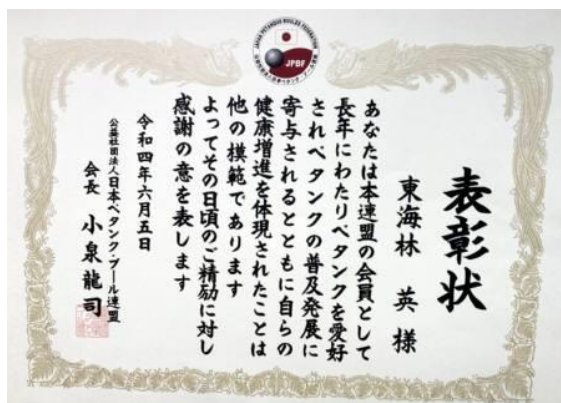 JAPAN PETANQUE BOULES FEDERATION
JPBF
表彰状
東海林 英 様
あなたは本連盟の会員として
長年にわたりペタンクを愛好
されペタンクの普及発展に
寄与されるとともに自らの
健康増進を体現されたことは
他の模範であります
よってその日頃のご精励に対し
感謝の意を表します
令和四年六月五日
公益社団法人日本ペタンク・ブール連盟
会長 小泉龍司